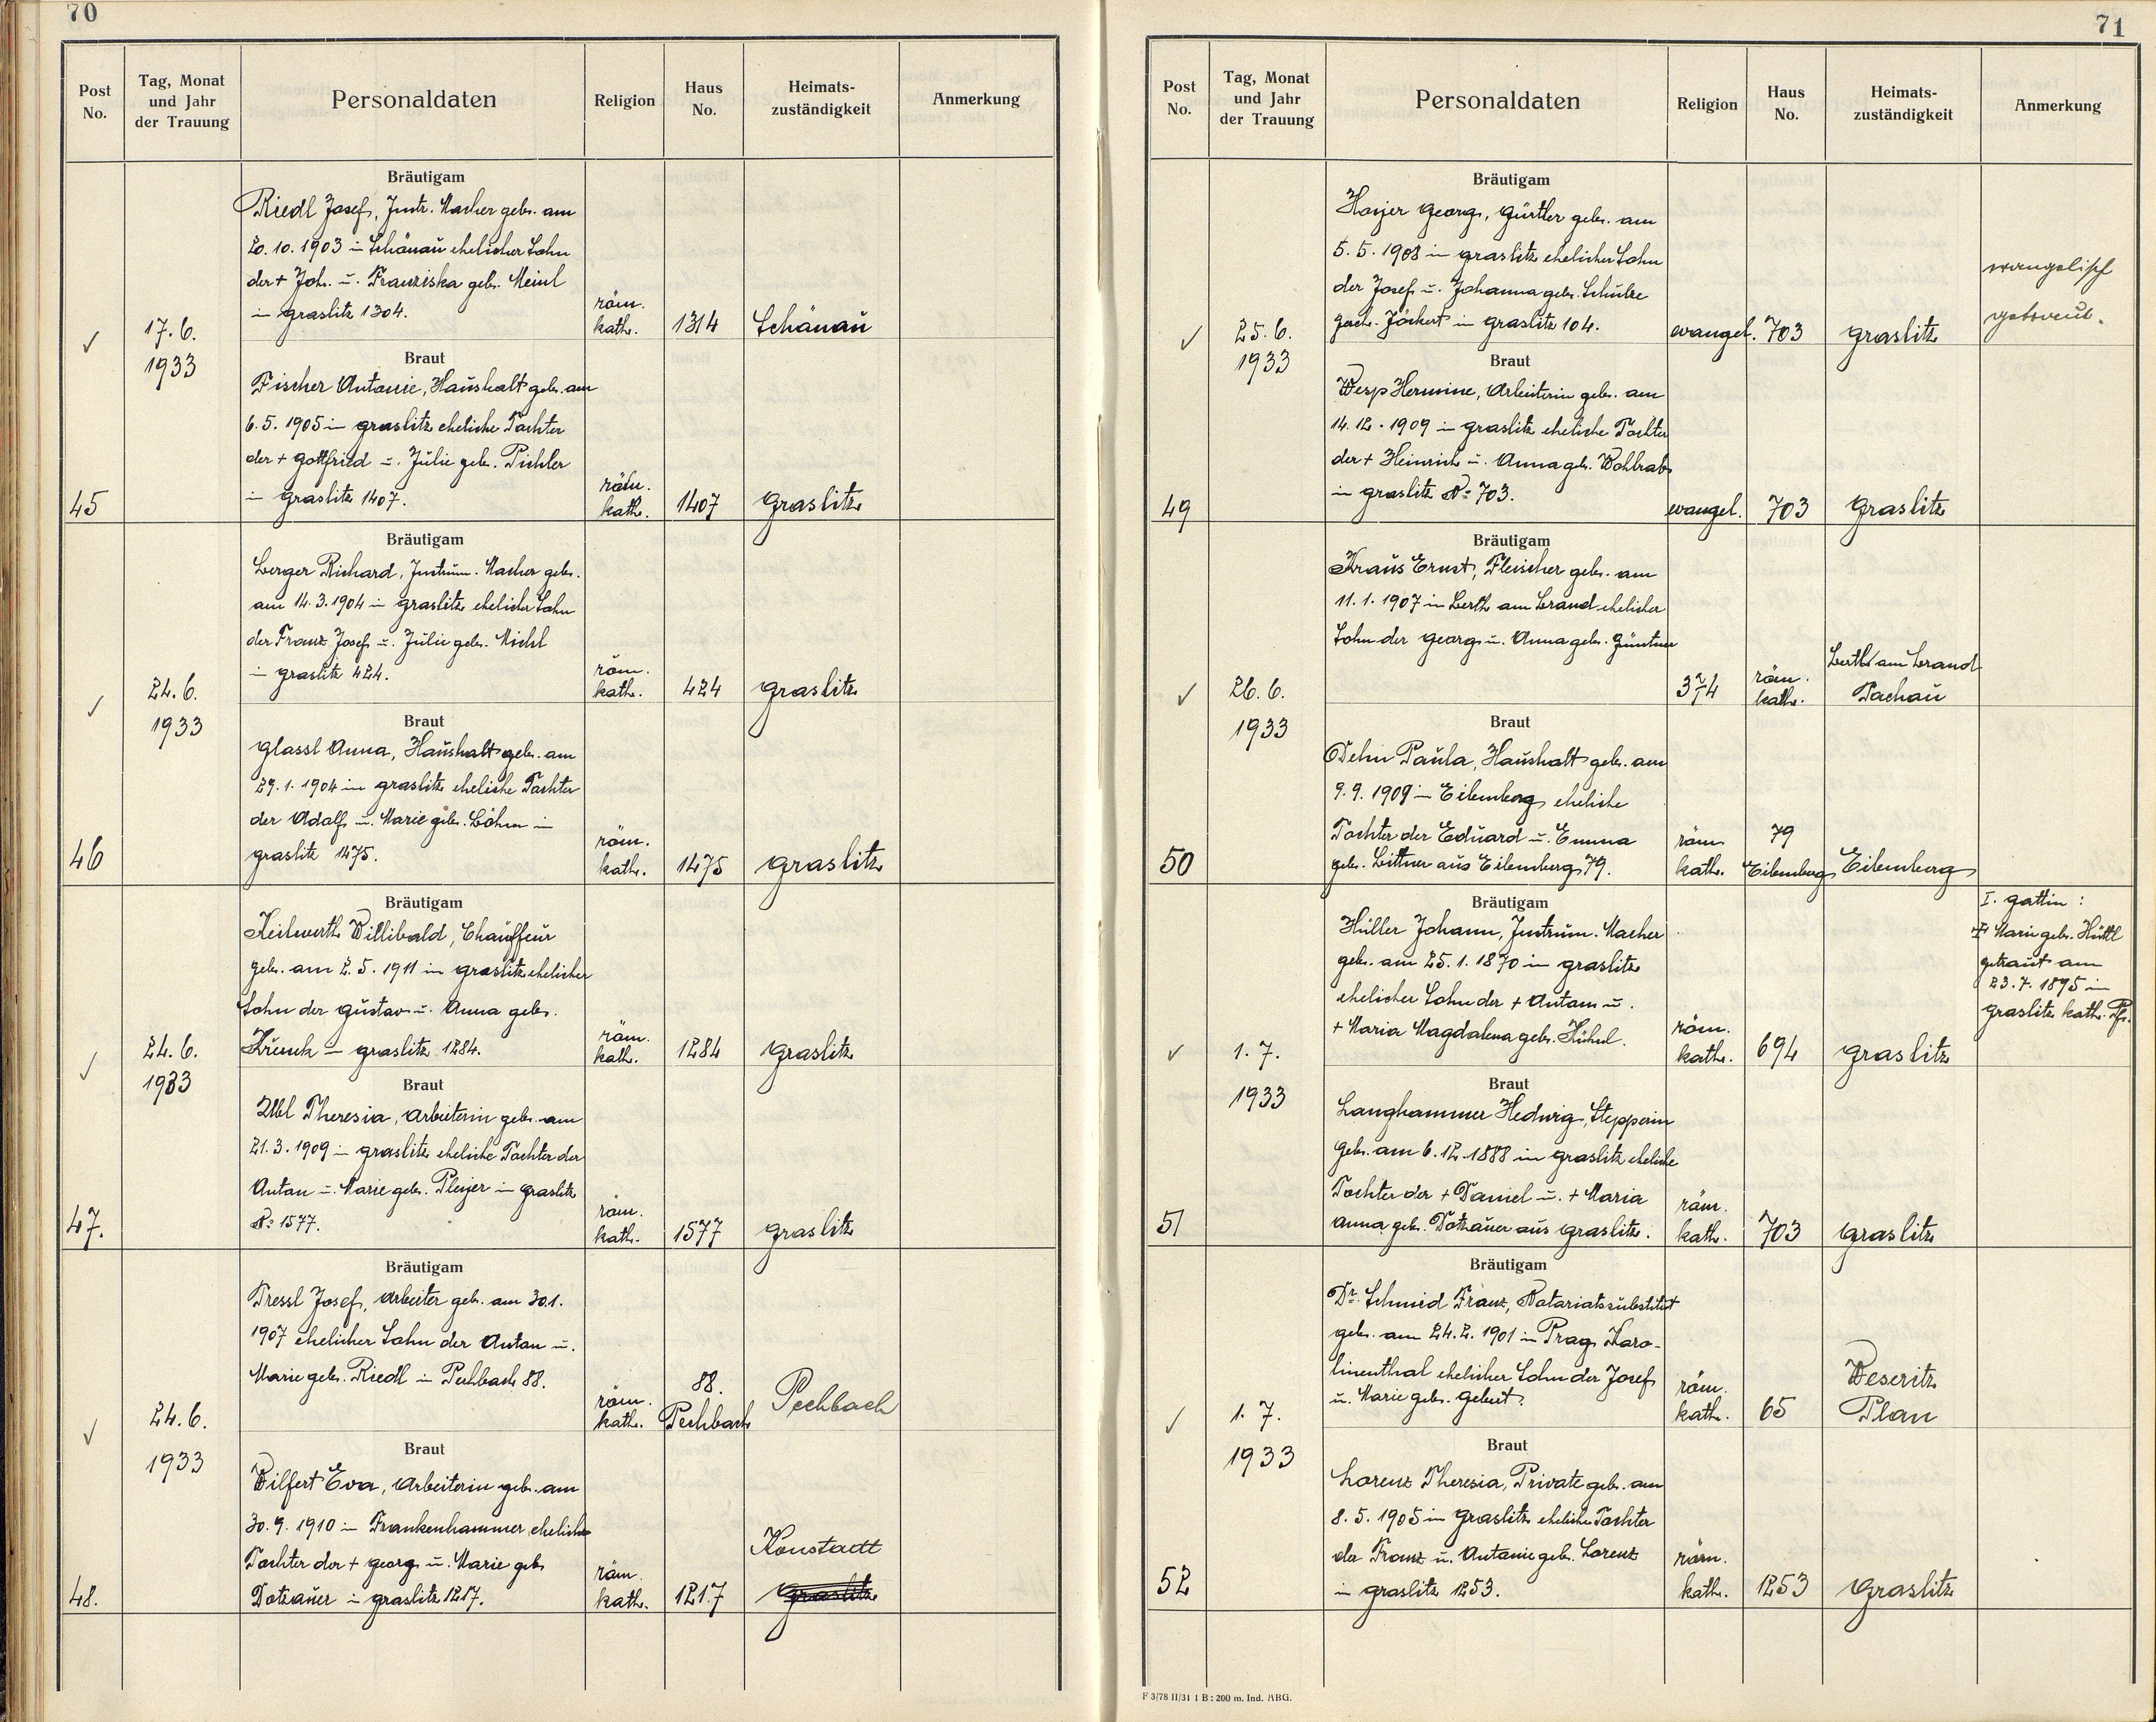 70
Post No.
Tag, Monat und Jahr der Trauung
Personaldaten
Religion
Haus No.
Heimats-zuständigkeit
Anmerkung
Bräutigam
Riedl Josef, Instr. Macher geb. am
20. 10. 1903 in Schönau ehelicher Sohn
der + Joh. u. Franziska geb. Meinl
in Graslitz 1304.
röm.
kath.
1314
Schönau
17. 6.
1933
Braut
Fischer Antonie, Haushalt geb. am
6. 5. 1905 in Graslitz eheliche Tochter
der + Gottfried u. Julie geb. Pichler
in Graslitz 1407.
röm.
kath.
1407
Graslitz
45
Bräutigam
Berger Richard, Instrum. Macher geb.
am 14. 3. 1904 in Graslitz ehelicher Sohn
der Franz Josef u. Julie geb. Michl
in Graslitz 424.
röm.
kath.
424
Graslitz
24. 6.
1933
Braut
Glassl Anna, Haushalt geb. am
29. 1. 1904 in Graslitz eheliche Tochter
der Adolf u. Marie geb. Böhm in
Graslitz 1475.
röm.
kath.
1475
Graslitz
46
Bräutigam
Keilwerth Willibald, Chauffeur
geb. am 2. 5. 1911 in Graslitz ehelicher
Sohn der Gustav u. Anna geb.
in Graslitz 1284.
röm.
kath.
1284
Graslitz
24. 6.
1933
Braut
Theresia, Arbeiterin geb. am
21. 3. 1909 in Graslitz eheliche Tochter der
Anton u. Marie geb. Pleyer in Graslitz
No. 1577.
röm.
kath.
1577
Graslitz
47.
Bräutigam
Tressl Josef, Arbeiter geb. am 30.1.
1907 ehelicher Sohn der Anton u.
Marie geb. Riedl in Pechbach 88.
röm.
kath.
88.
Pechbach
Pechbach
24. 6.
1933
Braut
Wilfert Eva, Arbeiterin geb. am
30. 9. 1910 in Frankenhammer eheliche
Tochter der + Georg u. Marie geb.
Dotzauer in Graslitz 1217.
röm.
kath.
1217
Konstadt
Graslitz
48.
71
Post No.
Tag, Monat und Jahr der Trauung
Personaldaten
Religion
Haus No.
Heimats-zuständigkeit
Anmerkung
Bräutigam
Hoyer Georg, Gürtler geb. am
5. 5. 1908 in Graslitz ehelicher Sohn
der Josef u. Johanna geb. Schulze
gesch. Jöckert in Graslitz 104.
evangel.
703
Graslitz
evangelisch
getraut.
25. 6.
1933
Braut
Wesp Hermine, Arbeiterin geb. am
14. 12. 1909 in Graslitz eheliche Tochter
der + Heinrich u. Anna geb. Wohlrab
in Graslitz No. 703.
evangel.
703
Graslitz
49
Bräutigam
Kraus Ernst, Fleischer geb. am
11. 1. 1907 in am Brand ehelicher
Sohn der Georg u. Anna geb. Güntner
374
röm.
kath.
am Brand
Tachau
26. 6.
1933
Braut
Dehn Paula, Haushalt geb. am
9. 9. 1909 in Eibenberg eheliche
Tochter der Eduard u. Emma
geb. Bittner aus Eibenberg 79.
röm.
kath.
79
Eibenberg
Eibenberg
50
Bräutigam
Hüller Johann, Instrum. Macher
geb. am 25. 1. 1870 in Graslitz
ehelicher Sohn der + Anton u.
+ Maria Magdalena geb. Kühnl.
röm.
kath.
694
Graslitz
I. Gattin:
+ Marie geb. Hüttl
getraut am
23. 7. 1895 in
Graslitz kath. Pf.
1. 7.
1933
Braut
Langhammer Hedwig, Stepperin
geb. am 6. 12. 1888 in Graslitz eheliche
Tochter der + Daniel u. + Maria
Anna geb. Dotzauer aus Graslitz.
röm.
kath.
703
Graslitz
51
Bräutigam
Dr. Schmid Franz, Notariatssubstitut
geb. am 24. 2. 1901 in Prag Karo-
linenthal ehelicher Sohn der Josef
u. Marie geb. Gebert.
röm.
kath.
65
Weseritz
Plan
1. 7.
1933
Braut
Lorenz Theresia, Private geb. am
8. 5. 1905 in Graslitz eheliche Tochter
der Franz u. Antonie geb. Lorenz
in Graslitz 1253.
röm.
kath.
1253
Graslitz
52
F 3/78 II/31 1 B : 200 m. Ind. ABG.